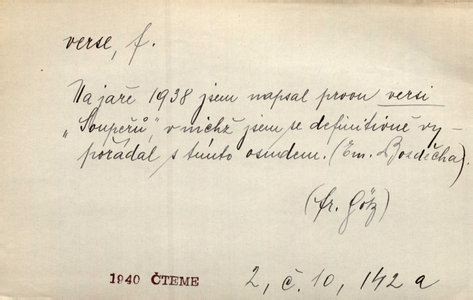 verse, f.
Na jaře 1938 jsem napsal prvou versi
„Soupeřů“, v nichž jsem se definitivně vy-
pořádal s tímto osudem. (Em. Bozděcha).
(Fr. Götz)
1940 ČTEME
2, č. 10, 142 a